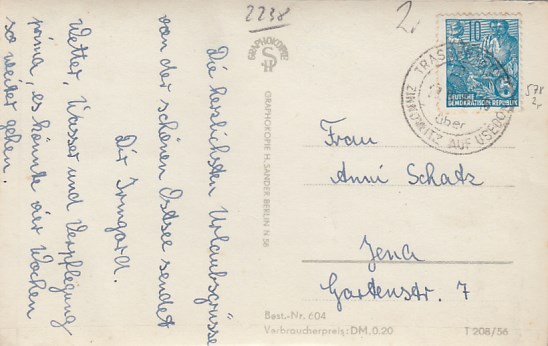 2238
2.
Die herzlichsten Urlaubsgrüsse
von der schönen Ostsee sendet
Dir Irmgard.
Wetter, Wasser und Verpflegung
prima, es könnte vier Wochen
so weiter gehen.
GRAPHOKOPIE
GRAPHOKOPIE H. SANDER BERLIN N 58
DEUTSCHE
DEMOKRATISCHE REPUBLIK
5
über
ZINNOWITZ AUF USEDOM
Frau
Anni Schatz
Jena
Gartenstr. 7
Best.-Nr. 604
Verbraucherpreis: DM.0.20
T 208/56